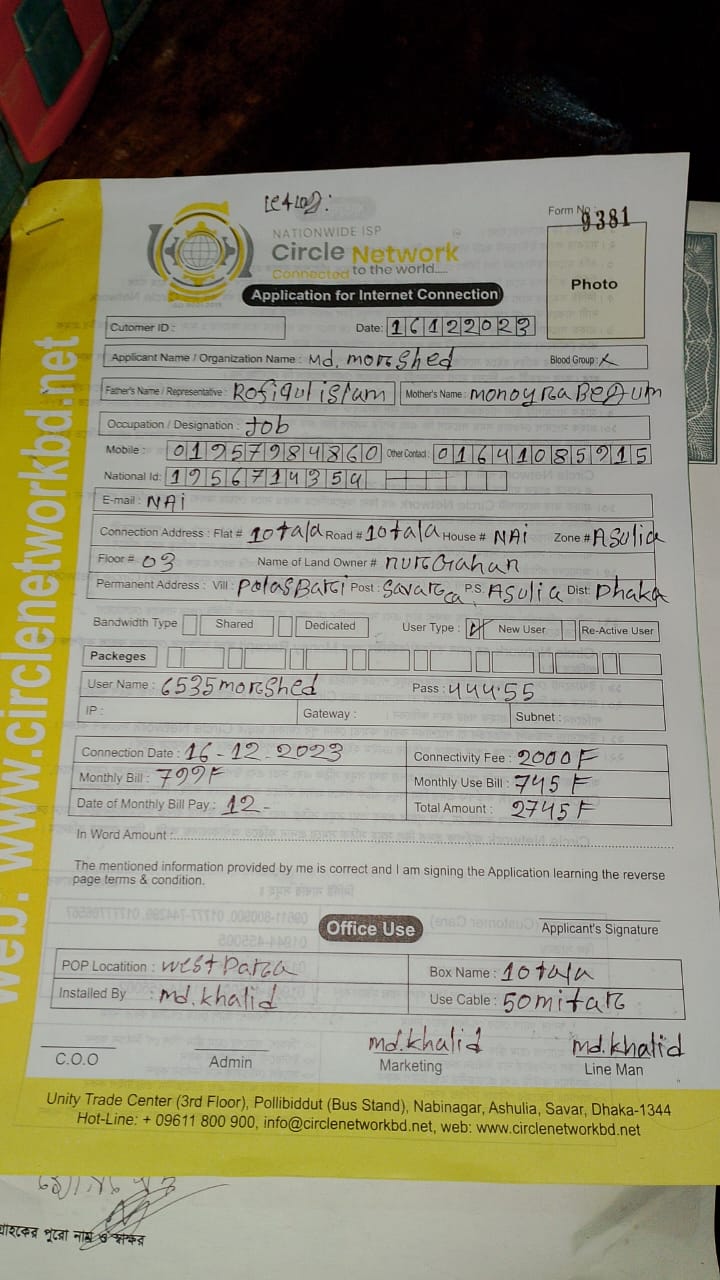 Form No : 9381
NATIONWIDE ISP
Circle Network
Connected to the world.....
Photo
Application for Internet Connection
Cutomer ID :
Date: 16122023
Applicant Name / Organization Name : Md. morshed Blood Group : X
Father's Name / Representative : Rofiqul islam Mother's Name : monoyRa BeGum
Occupation / Designation : Job
Mobile : 01957984860 Other Contact : 01641085915
National Id: 1956714354
E-mail : NAi
Connection Address : Flat # 10 tala Road # 10 tala House # NAi Zone # ASulia
Floor # 03 Name of Land Owner #
Permanent Address : Vill : PolasBari Post : Savar P.S. ASulia Dist: Dhaka
Bandwidth Type Shared Dedicated User Type : New User Re-Active User
Packeges
User Name : 6535morshed Pass : 444.55
IP : Gateway : Subnet :
Connection Date : 16-12.2023 Connectivity Fee : 2000 F
Monthly Bill : 799F Monthly Use Bill : 745 F
Date of Monthly Bill Pay : 12- Total Amount : 2745 F
In Word Amount :
The mentioned information provided by me is correct and I am signing the Application learning the reverse
page terms & condition.
Office Use
Applicant's Signature
POP Locatition : west Para Box Name : 10 tala
Installed By : md.khalid Use Cable : 50 mitar
md.khalid md.khalid
C.O.O Admin Marketing Line Man
Unity Trade Center (3rd Floor), Pollibiddut (Bus Stand), Nabinagar, Ashulia, Savar, Dhaka-1344
Hot-Line: + 09611 800 900, info@circlenetworkbd.net, web: www.circlenetworkbd.net
web: www.circlenetworkbd.net
গ্রাহকের পুরো নাম ও স্বাক্ষর